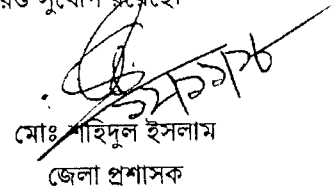 সুযোগ রয়েছে।
মোঃ শহিদুল ইসলাম
জেলা প্রশাসক